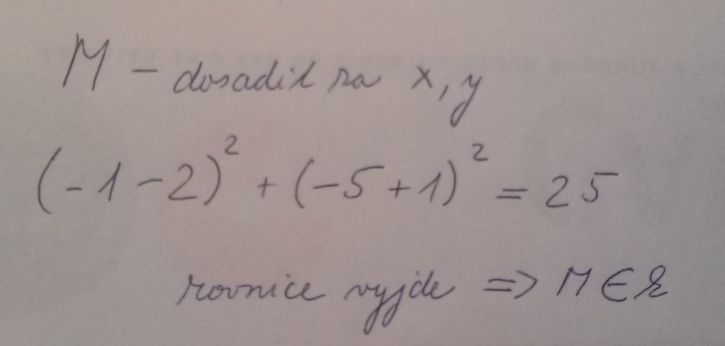 M - dosadil za x, y
(-1-2)² + (-5+1)² = 25
rovnice vyjde => M ∈ k